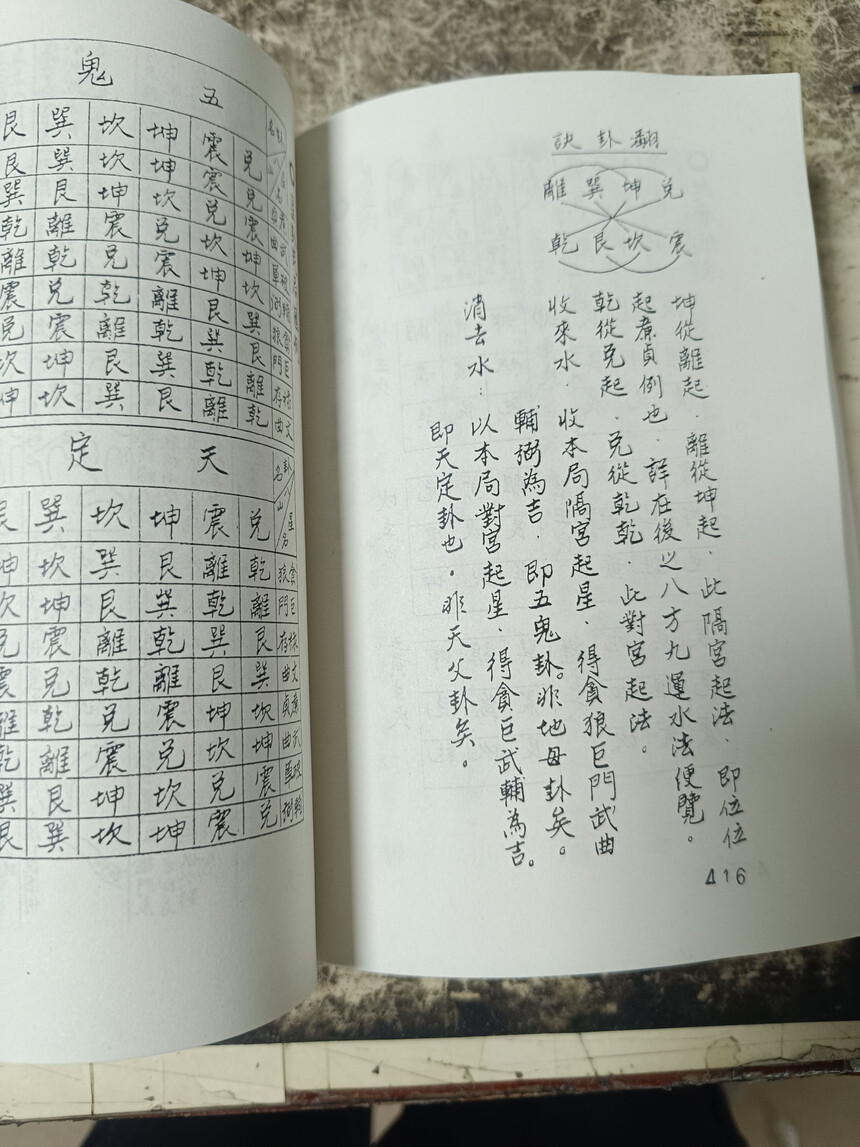 翻卦訣
兌坤巽離
震坎艮乾
坤從離起．離從坤起．此隔宮起法、即位位
起廉貞例也．詳在後之八方九運水法便覽。
乾從兌起．兌從乾乾．此對宮起法。
收來水．收本局隔宮起星．得貪狼巨門武曲
輔弼為吉．即五鬼卦。非地母卦矣。
消去水：以本局對宮起星．得貪巨武輔為吉。
即天定卦也。非天父卦矣。
416
五鬼
兌 震 坤 坎 巽 艮
廉貞 兌 震 坤 坎 巽 艮
武曲 震 兌 坎 坤 艮 巽
破軍 坤 坎 兌 震 離 乾
輔弼 坎 坤 震 兌 乾 離
貪狼 巽 艮 離 乾 兌 震
巨門 艮 巽 乾 離 震 兌
祿存 離 乾 巽 艮 坤 坎
文曲 乾 離 艮 巽 坎 坤
天定
卦名 山 星名 兌 震 坤 坎 巽 艮
貪狼 乾 離 艮 巽 坎 坤
巨門 離 乾 巽 艮 坤 坎
祿存 艮 巽 乾 離 震 兌
文曲 巽 艮 離 乾 兌 震
廉貞 坎 坤 震 兌 乾 離
武曲 坤 坎 兌 震 離 乾
破軍 震 兌 坎 坤 艮 巽
輔弼 兌 震 坤 坎 巽 艮